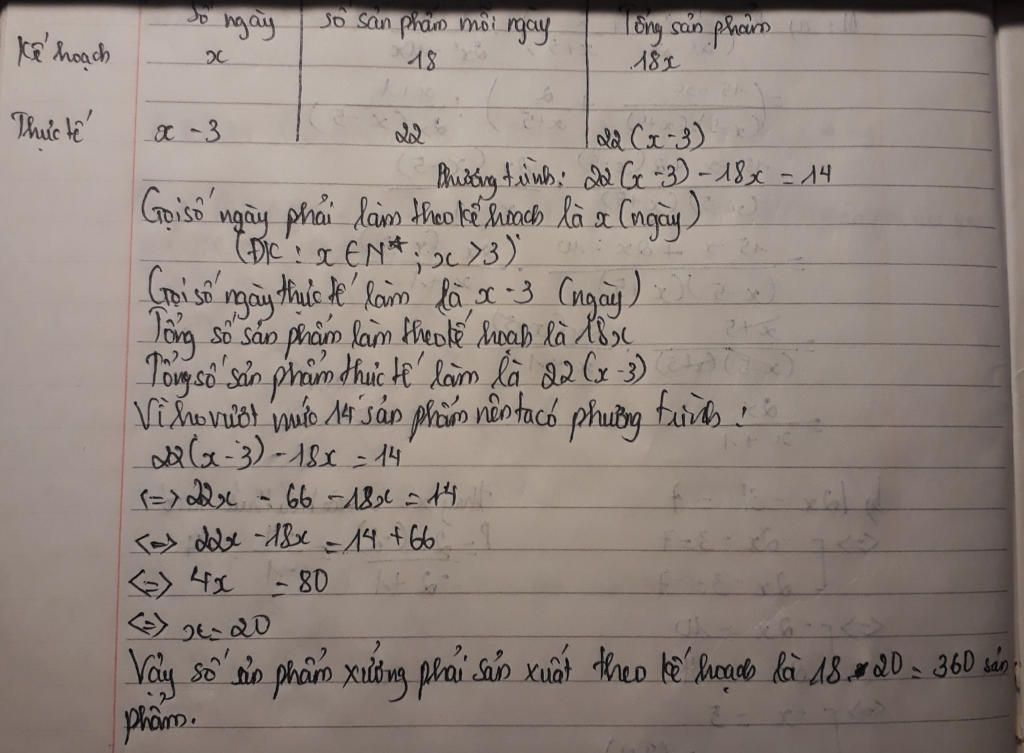 Số ngày số sản phẩm mỗi ngày Tổng sản phẩm
Kế hoạch x 18 18x
Thực tế x - 3 22 22(x-3)
Phương trình: 22(x-3)-18x = 14
Gọi số ngày phải làm theo kế hoạch là x (ngày)
(ĐK : x ∈ N* ; x > 3)
Gọi số ngày thực tế làm là x-3 (ngày)
Tổng số sản phẩm làm theo kế hoạch là 18x
Tổng số sản phẩm thực tế làm là 22(x-3)
Vì họ vượt mức 14 sản phẩm nên ta có phương trình :
22(x-3)-18x = 14
<=> 22x - 66 -18x = 14
<=> 22x -18x = 14 + 66
<=> 4x = 80
<=> x = 20
Vậy số sản phẩm xưởng phải sản xuất theo kế hoạch là 18.20 = 360 sản
phẩm.